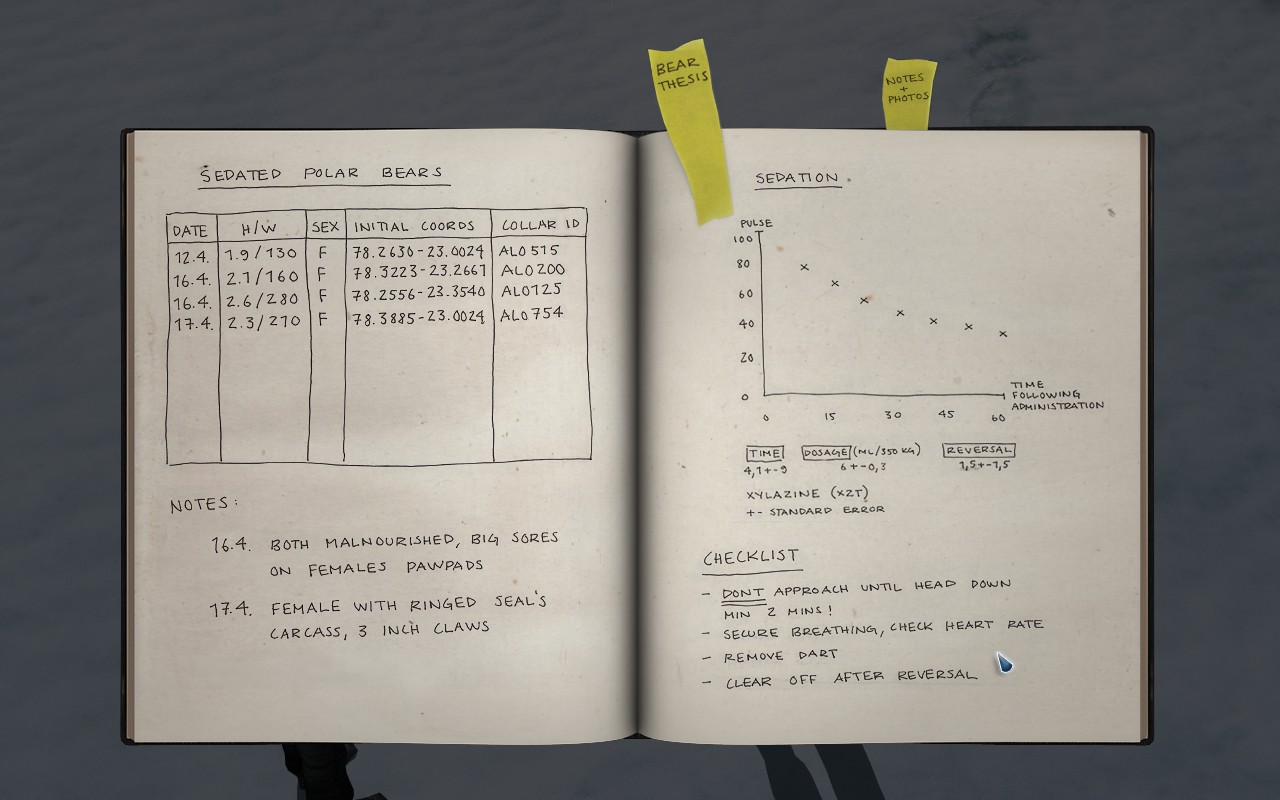 BEAR
THESIS
NOTES
+
PHOTOS
SEDATED POLAR BEARS
DATE H/W SEX INITIAL COORDS COLLAR ID
12.4. 1.9/130 F 78.2630-23.0024 AL0515
16.4. 2.1/160 F 78.3223-23.2661 AL0200
16.4. 2.6/280 F 78.2556-23.3540 AL0125
17.4. 2.3/270 F 78.3885-23.0024 AL0754
NOTES:
16.4. BOTH MALNOURISHED, BIG SORES
ON FEMALES PAWPADS
17.4. FEMALE WITH RINGED SEAL'S
CARCASS, 3 INCH CLAWS
SEDATION.
PULSE
100
80
60
40
20
0
0 15 30 45 60
TIME
FOLLOWING
ADMINISTRATION
TIME DOSAGE (ML/350 KG) REVERSAL
4,1+-9 6+-0,3 1,5+-1,5
XYLAZINE (XZT)
+- STANDARD ERROR
CHECKLIST
- DONT APPROACH UNTIL HEAD DOWN
MIN 2 MINS!
- SECURE BREATHING, CHECK HEART RATE
- REMOVE DART
- CLEAR OFF AFTER REVERSAL